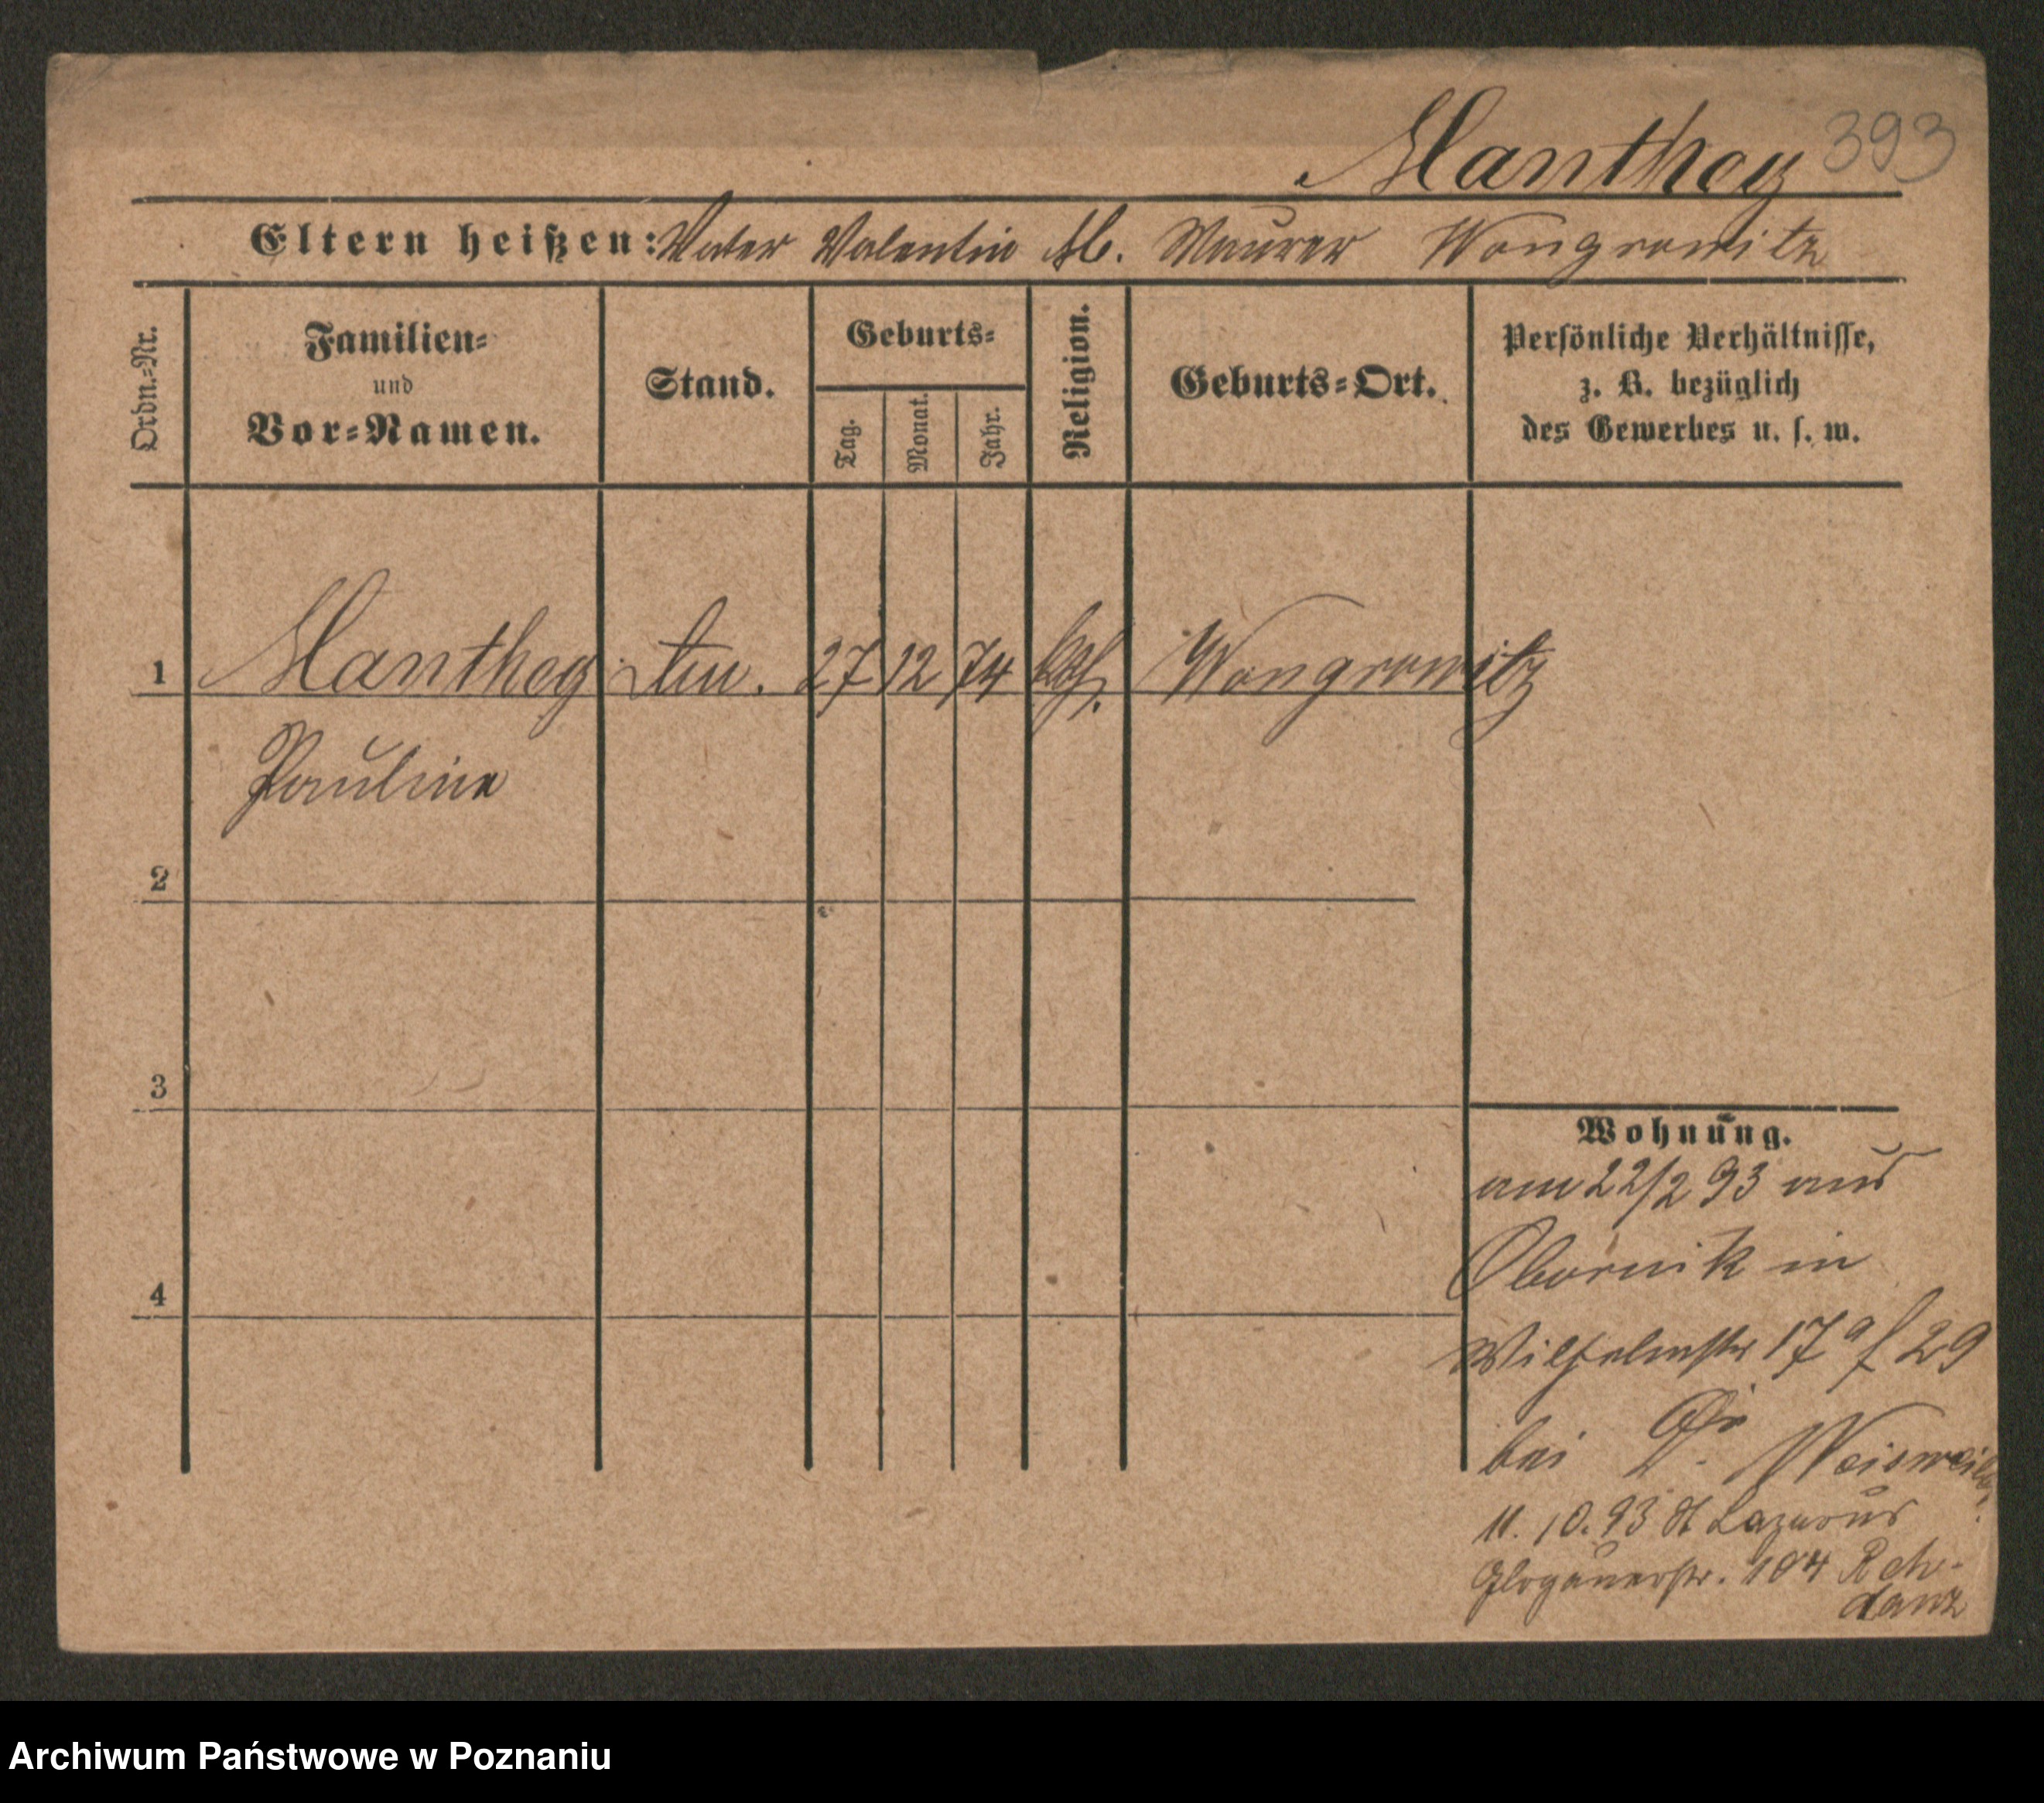 Manthey 393
Eltern heißen: Vater Valentin M. Maurer Wongrowitz
Ordn.-Nr.
Familien-
und
Vor-Namen.
Stand.
Geburts-
Tag.
Monat.
Jahr.
Religion.
Geburts-Ort.
Persönliche Verhältnisse,
z. B. bezüglich
des Gewerbes u. s. w.
1 Manthey 27 12 74 kth. Wongrowitz
Pauline
2
3
4
Wohnung.
am 22/2 93 aus
Obornik in
Wilhelmstr 17 a f 29
bei Dr. Weisweiler
11. 10. 93 St Lazarus
Glogauerstr. 104 Reh-
danz
Archiwum Państwowe w Poznaniu